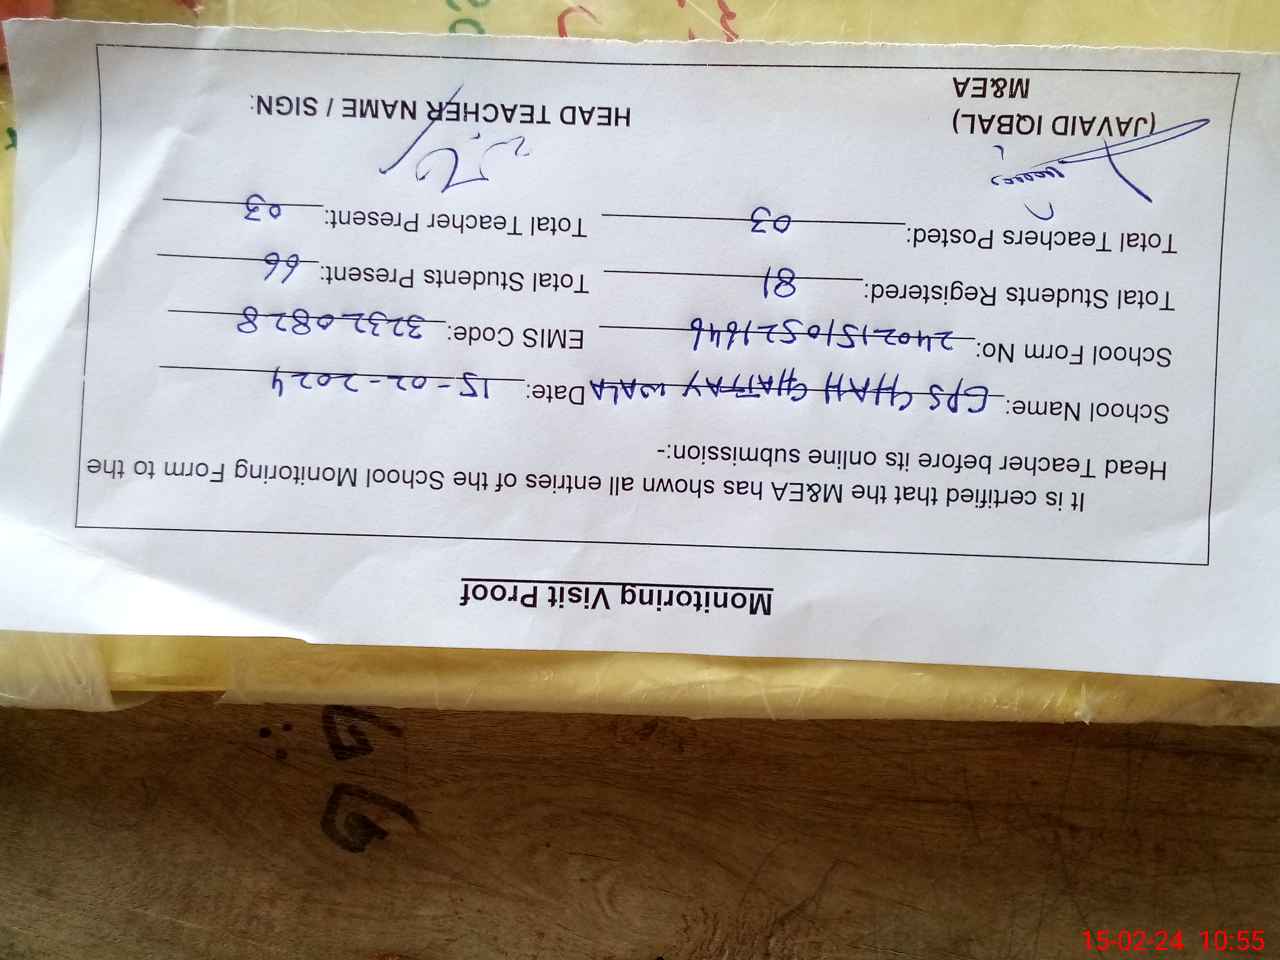 Monitoring Visit Proof
It is certified that the M&EA has shown all entries of the School Monitoring Form to the
Head Teacher before its online submission:-
School Name: GPS CHAH CHATTAY WALA Date: 15-02-2024
School Form No: 24021510521646 EMIS Code: 32320828
Total Students Registered: 81 Total Students Present: 66
Total Teachers Posted: 03 Total Teacher Present: 03
(JAVAID IQBAL) HEAD TEACHER NAME / SIGN:
M&EA
15-02-24 10:55